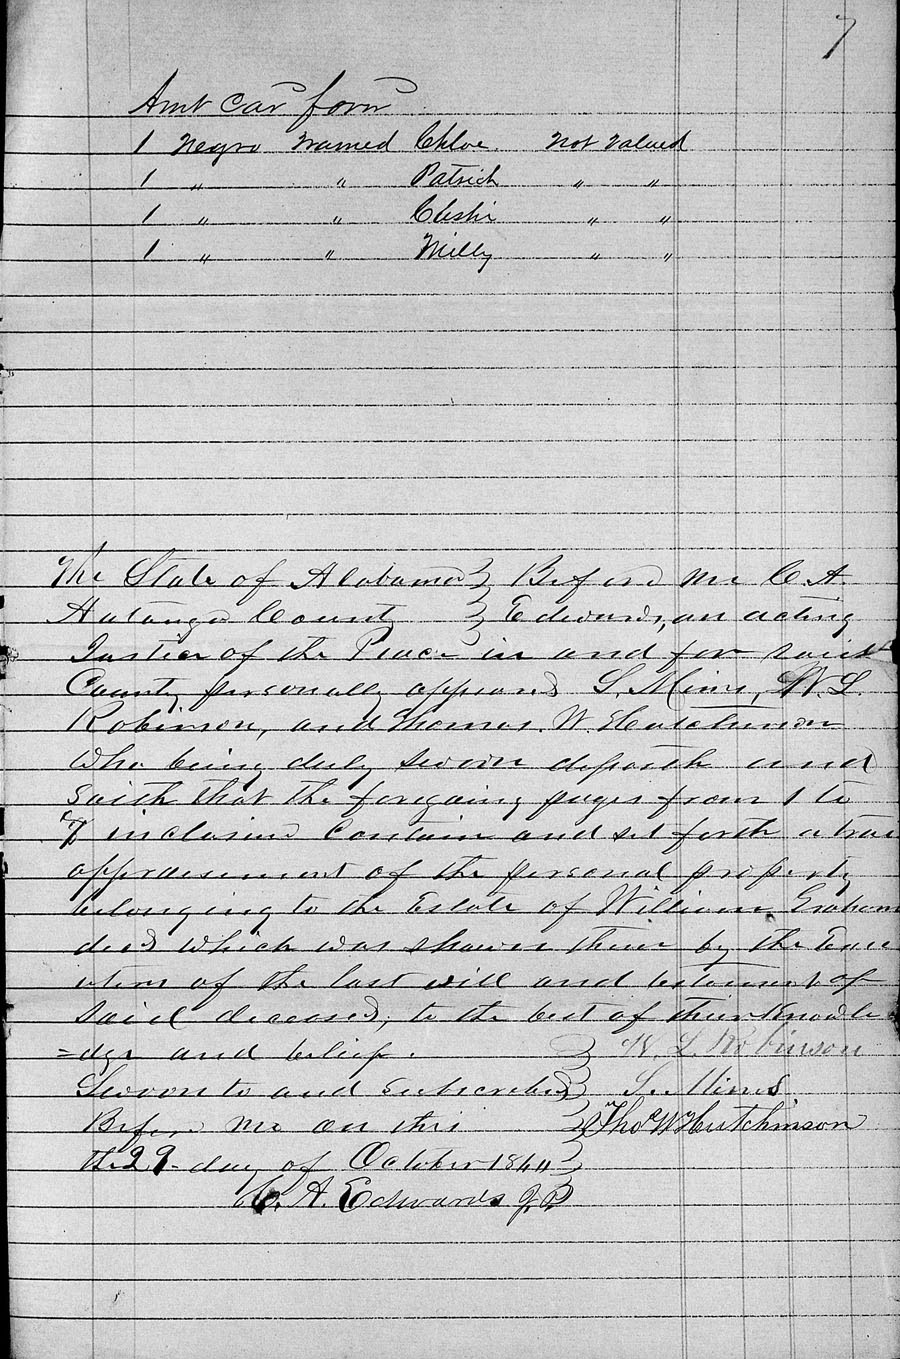 7
Amt car forw
1 Negro Named Chloe Not Valued
1 〃 〃 Patrick 〃 〃
1 〃 〃 〃 〃
1 〃 〃 Milly 〃 〃
The State of Alabama } Before me C. A.
Autauga County } Edwards, an acting
Justice of the Peace in and for said
County personally appeared S. Mims, W. L.
Robinson, and Thomas W. Hutchinson
Who being duly sworn deposeth and
Saith that the foregoing pages from 1 to
7 inclusive Contain and set forth a true
appraisement of the personal property
belonging to the Estate of William Graham
decd which was shown them by the Exec
utors of the last will and testament of
said deceased, to the best of their Knowle
=dge and belief. } W. L. Robinson
Sworn to and subscribed } S. Mims
Before me on this } Thos W Hutchinson
the 29 day of October 1844 }
C. A. Edwards J.P.